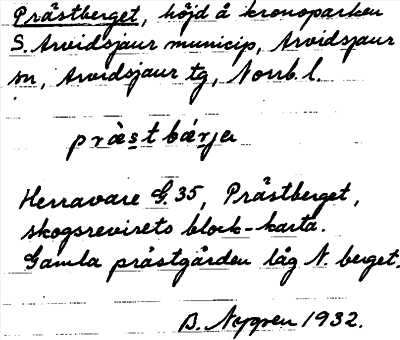 Prästberget, höjd å kronoparken
S. Arvidsjaur municip, Arvidsjaur
sn, Arvidsjaur tg, Norrb. l.
präs̲t bár̲ja
Herravare G. 35, Prästberget,
skogsrevirets block-karta.
Gamla prästgården låg N. berget.
B. Nygren 1932.